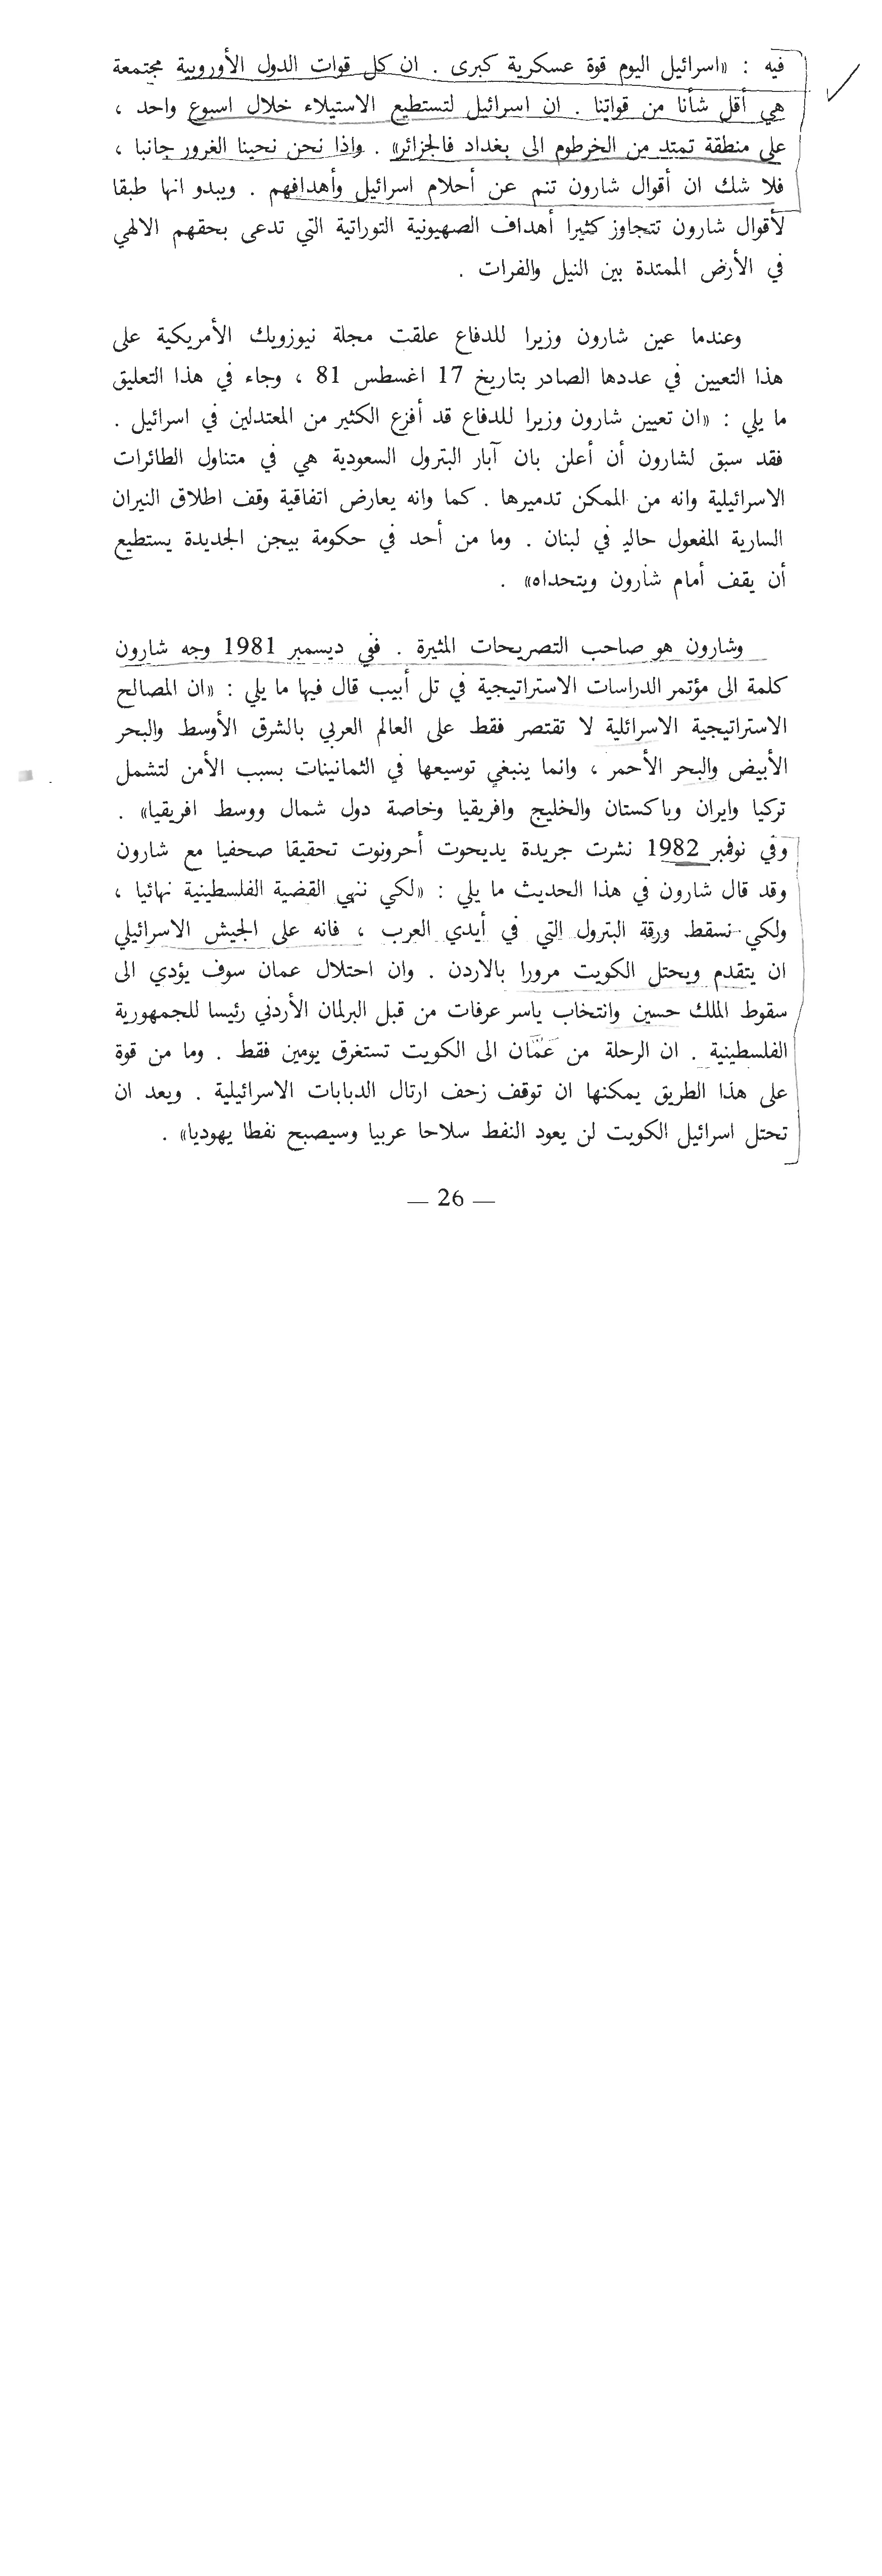 فيه : «اسرائيل اليوم قوة عسكرية كبرى . ان كل قوات الدول الأوروبية مجتمعة
هي أقل شأنا من قواتنا . ان اسرائيل لتستطيع الاستيلاء خلال اسبوع واحد ،
على منطقة تمتد من الخرطوم الى بغداد فالجزائر» . واذا نحن نحينا الغرور جانبا ،
فلا شك ان أقوال شارون تنم عن أحلام اسرائيل وأهدافهم . ويبدو انها طبقا
لأقوال شارون تتجاوز كثيرا أهداف الصهيونية التوراتية التي تدعى بحقهم الالهي
في الأرض الممتدة بين النيل والفرات .
وعندما عين شارون وزيرا للدفاع علقت مجلة نيوزويك الأمريكية على
هذا التعيين في عددها الصادر بتاريخ 17 اغسطس 81 ، وجاء في هذا التعليق
ما يلي : «ان تعيين شارون وزيرا للدفاع قد أفزع الكثير من المعتدلين في اسرائيل .
فقد سبق لشارون أن أعلن بان آبار البترول السعودية هي في متناول الطائرات
الاسرائيلية وانه من الممكن تدميرها . كما وانه يعارض اتفاقية وقف اطلاق النيران
السارية المفعول حاليا في لبنان . وما من أحد في حكومة بيجن الجديدة يستطيع
أن يقف أمام شارون ويتحداه» .
وشارون هو صاحب التصريحات المثيرة . ففي ديسمبر 1981 وجه شارون
كلمة الى مؤتمر الدراسات الاستراتيجية في تل أبيب قال فيها ما يلي : «ان المصالح
الاستراتيجية الاسرائلية لا تقتصر فقط على العالم العربي بالشرق الأوسط والبحر
الأبيض والبحر الأحمر ، وانما ينبغي توسيعها في الثمانينات بسبب الأمن لتشمل
تركيا وايران وباكستان والخليج وافريقيا وخاصة دول شمال ووسط افريقيا» .
وفي نوفمبر 1982 نشرت جريدة يديحوت أحرونوت تحقيقا صحفيا مع شارون
وقد قال شارون في هذا الحديث ما يلي : «لكي ننهي القضية الفلسطينية نهائيا ،
ولكي نسقط ورقة البترول التي في أيدي العرب ، فانه على الجيش الاسرائيلي
ان يتقدم ويحتل الكويت مرورا بالاردن . وان احتلال عمان سوف يؤدي الى
سقوط الملك حسين وانتخاب ياسر عرفات من قبل البرلمان الأردني رئيسا للجمهورية
الفلسطينية . ان الرحلة من عمّان الى الكويت تستغرق يومين فقط . وما من قوة
على هذا الطريق يمكنها ان توقف زحف ارتال الدبابات الاسرائيلية . وبعد ان
تحتل اسرائيل الكويت لن يعود النفط سلاحا عربيا وسيصبح نفطا يهوديا» .
— 26 —